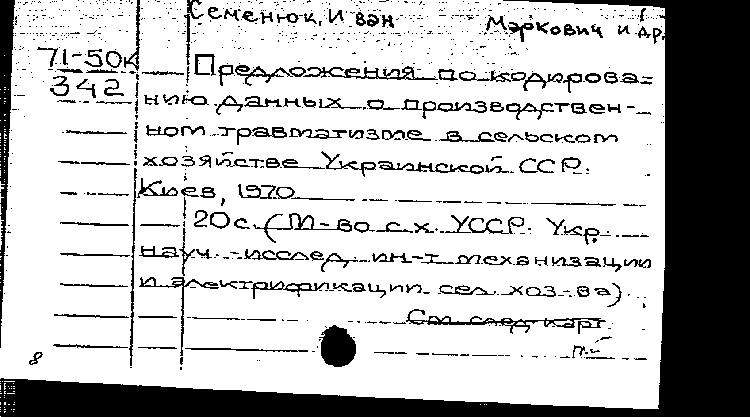 Семенюк, Иван Маркович и др.
71-50к
342
Предложения по кодирова=
нию данных о производствен-
ном травматизме в сельском
хозяйстве Украинской ССР.
Киев, 1970
20 с. (М-во с.х. УССР. Укр.
науч.-исслед. ин-т механизации
и электрификации сел. хоз-ва).
См. след. карт.
8